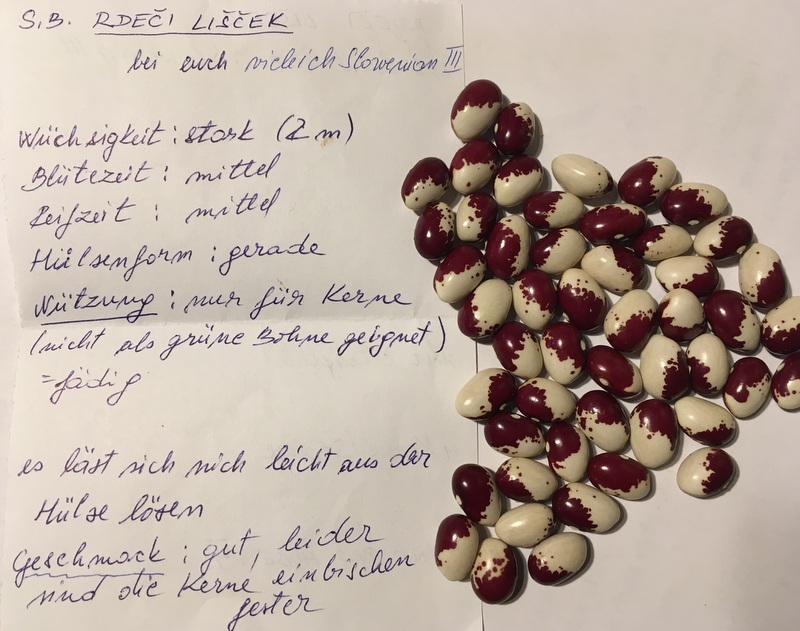 S.B. RDEČI LIŠČEK
bei euch vieleich Slowenian III
Wüchsigkeit : stark (2 m)
Blütezeit : mittel
Reifzeit : mittel
Hülsenform : gerade
Nützung : nur für Kerne
(nicht als grüne Bohne geignet)
= fädig
es läst sich nich leicht aus der
Hülse lösen
Geschmack : gut, leider
sind die Kerne einbischen
fester